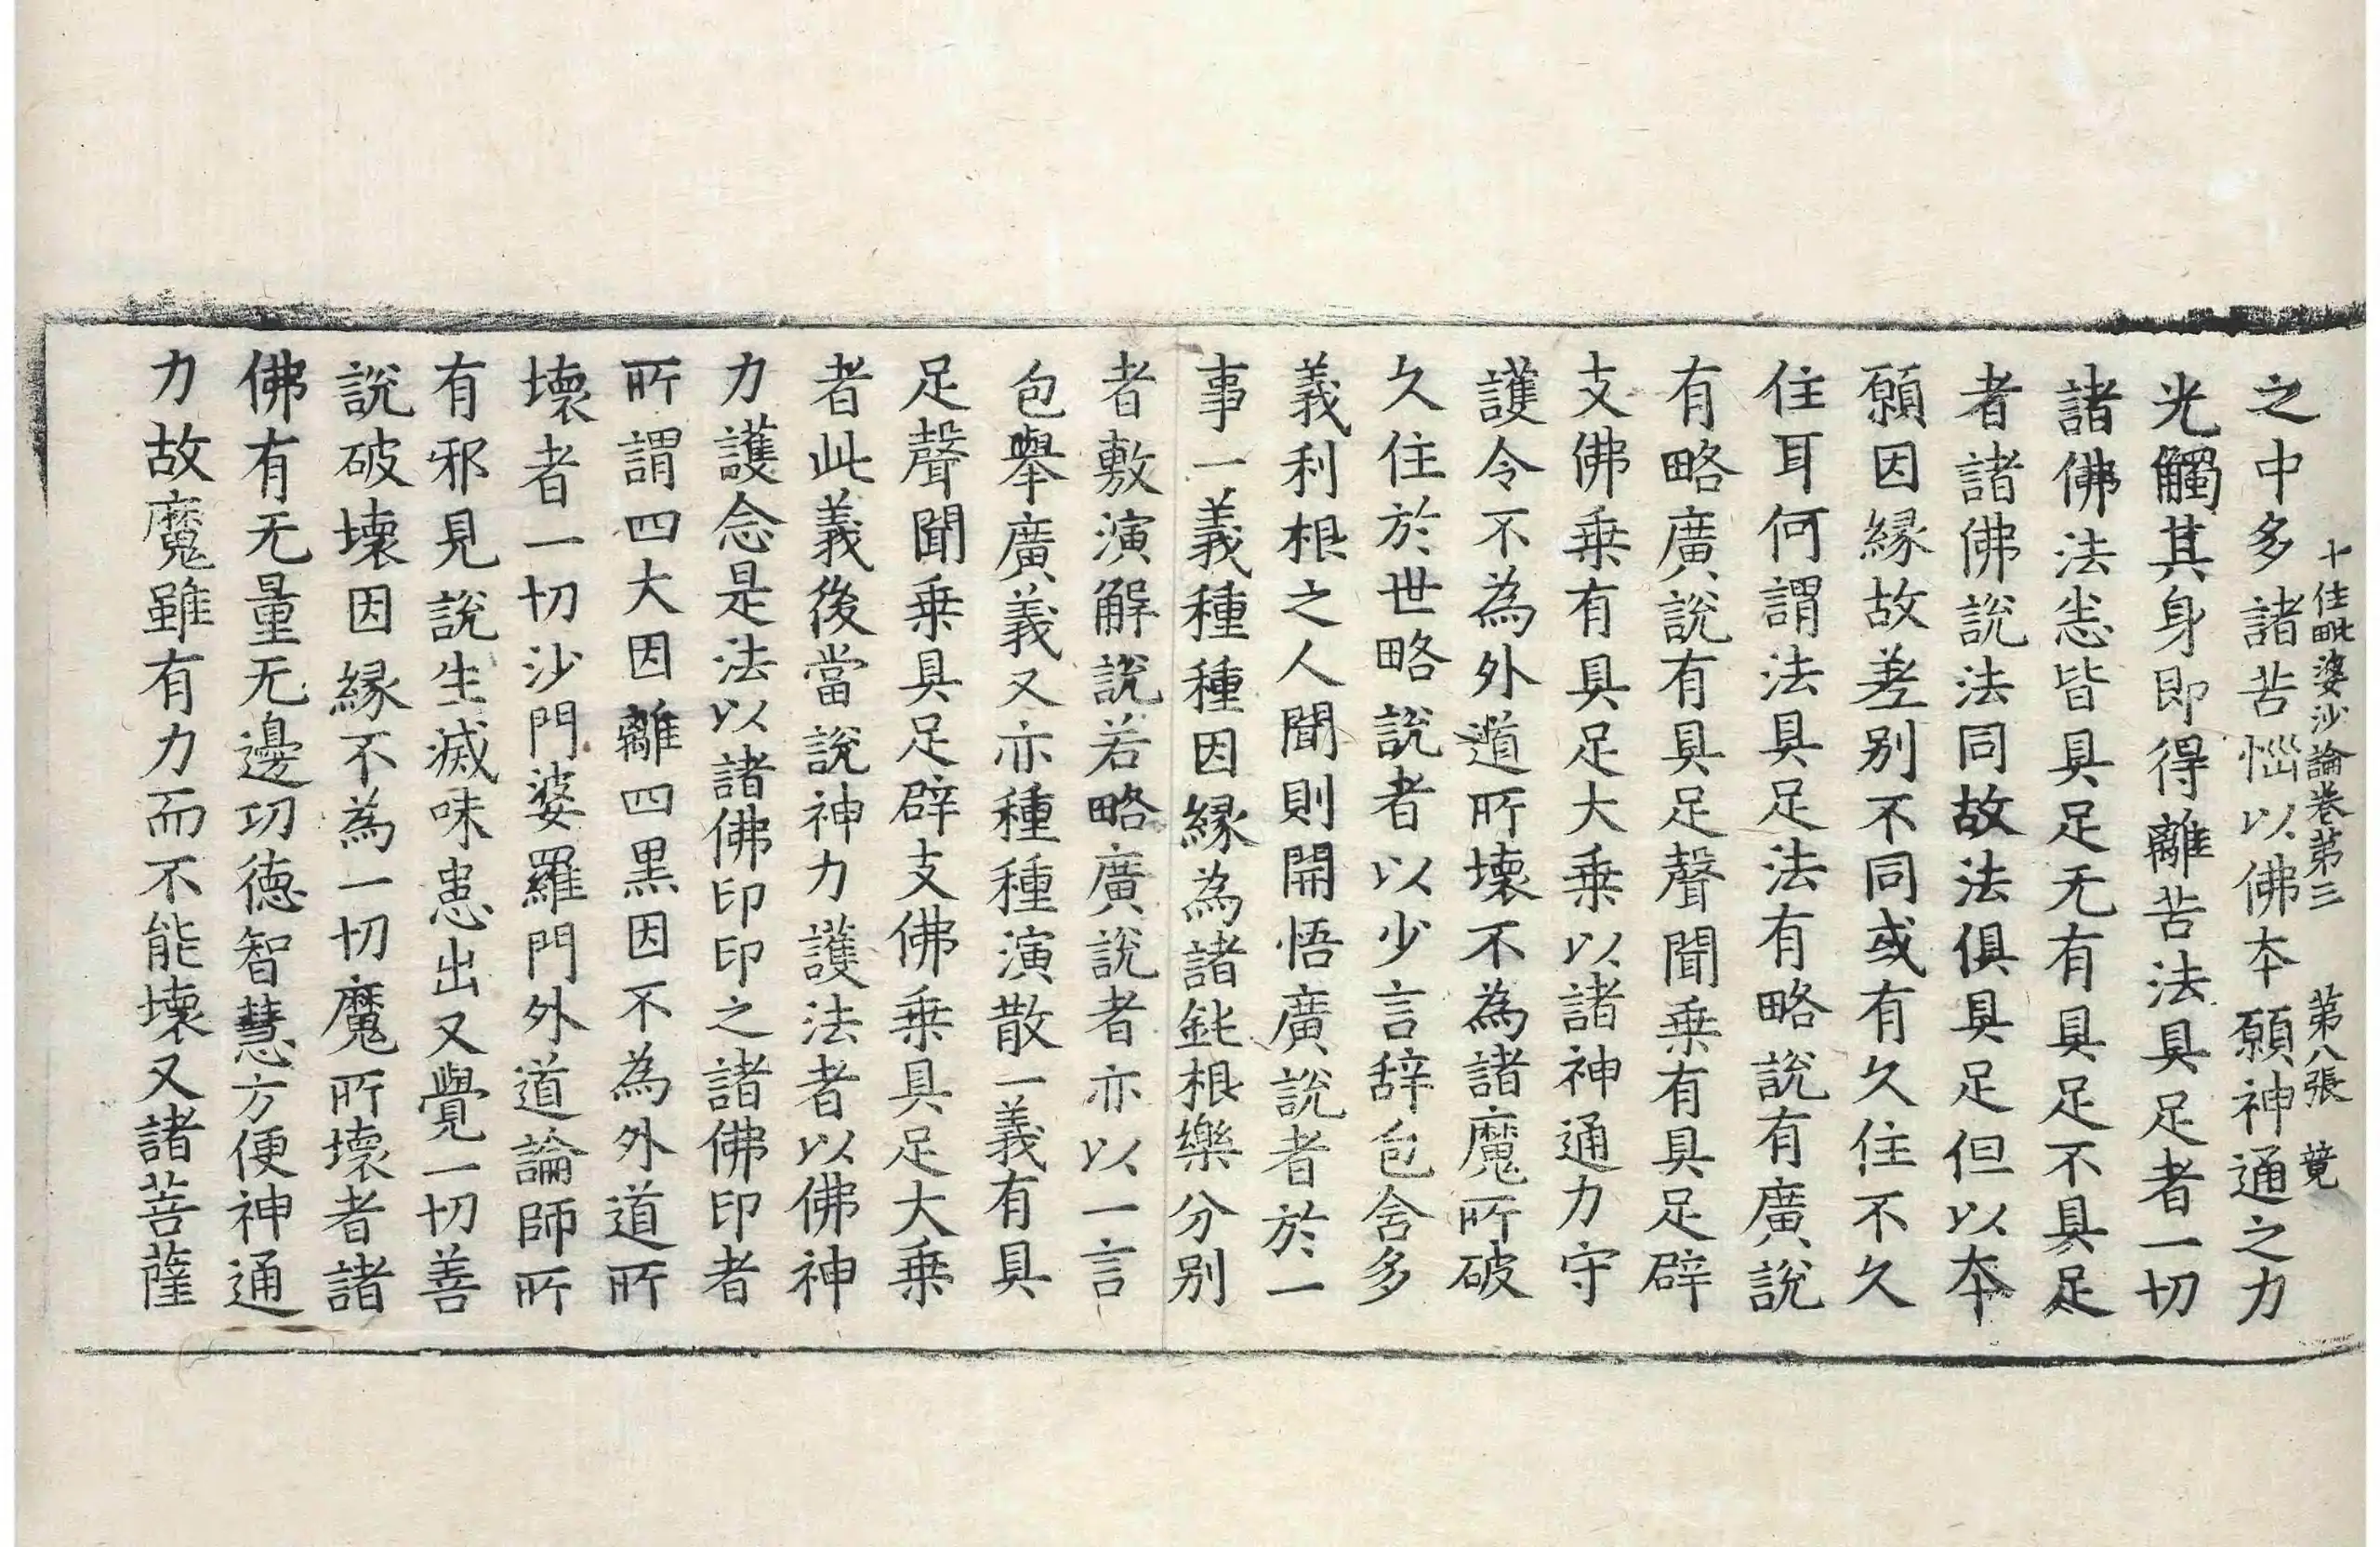 十住毗婆沙論卷第三 第八張 競
之中多諸苦惱以佛本願神通之力
光觸其身即得離苦法具足者一切
諸佛法悉皆具足无有具足不具足
者諸佛說法同故法俱具足但以本
願因緣故差別不同或有久住不久
住耳何謂法具足法有略說有廣說
有略廣說有具足聲聞乗有具足辟
支佛乗有具足大乗以諸神通力守
護令不為外道所壞不為諸魔所破
久住於世略說者以少言辞包含多
義利根之人聞則開悟廣說者於一
事一義種種因緣為諸鈍根樂分別
者敷演解說若略廣說者亦以一言
包舉廣義又亦種種演散一義有具
足聲聞乗具足辟支佛乗具足大乗
者此義後當說神力護法者以佛神
力護念是法以諸佛印印之諸佛印者
所謂四大因離四黒因不為外道所
壞者一切沙門婆羅門外道論師所
有邪見說生滅味患出又覺一切善
說破壞因緣不為一切魔所壞者諸
佛有无量无邊功德智慧方便神通
力故魔雖有力而不能壞又諸菩薩